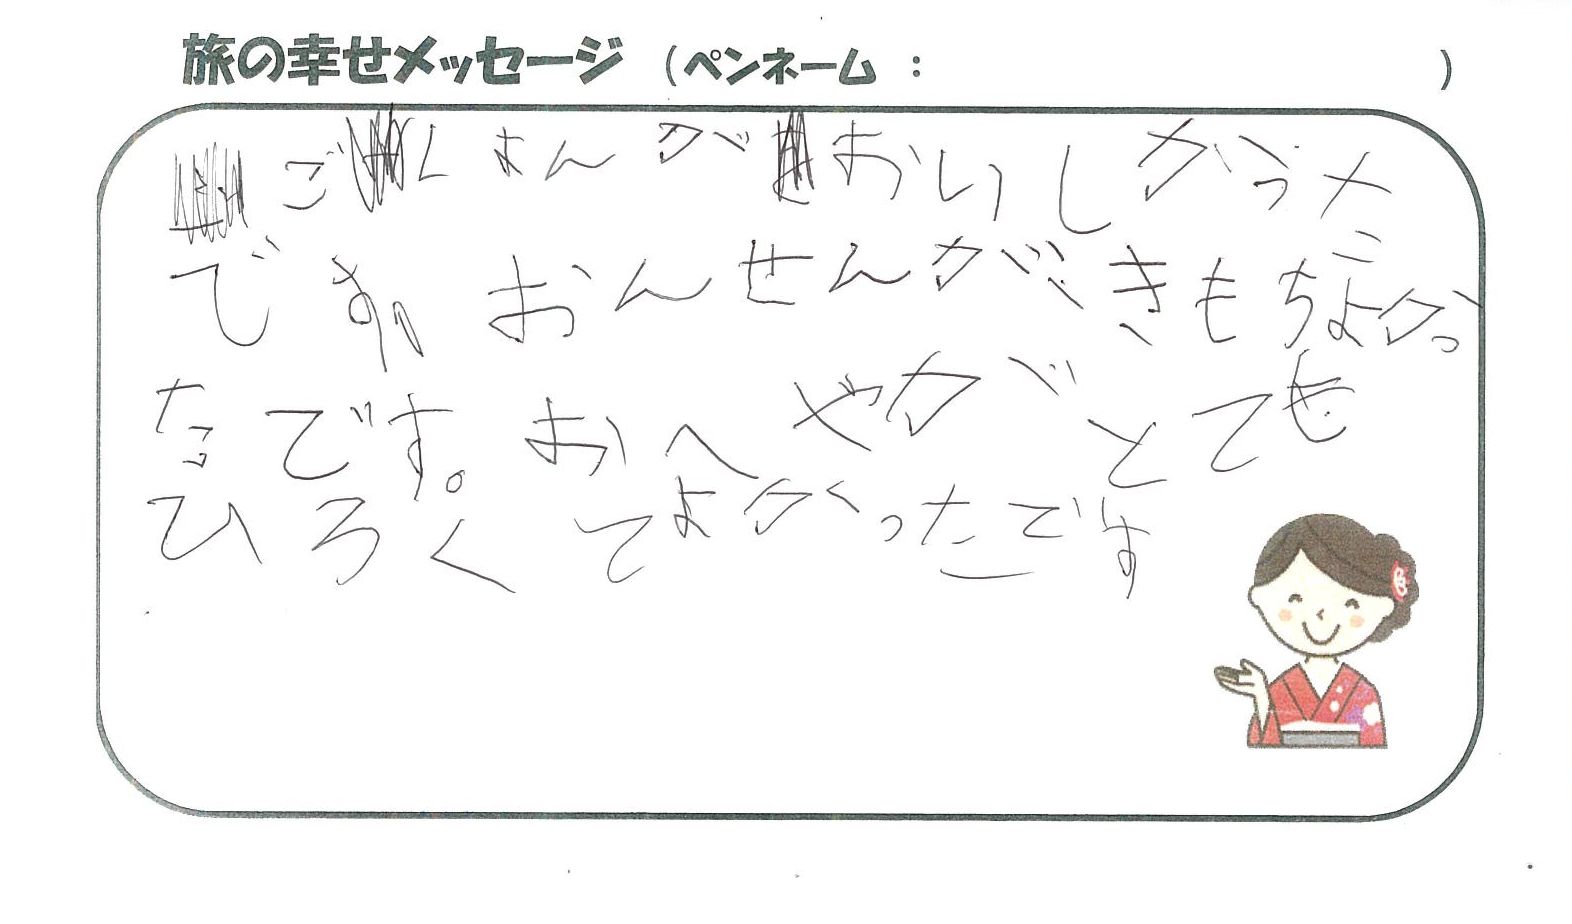 旅の幸せメッセージ (ペンネーム : )
ごはんがおいしかった
です。おんせんがきもちよかっ
たです。おへやがとても
ひろくてよかったです